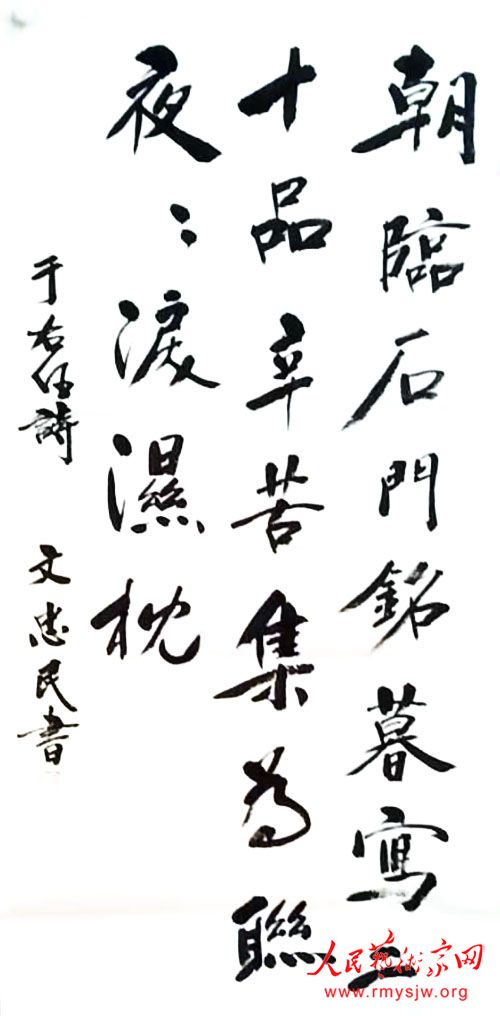 朝臨石門銘暮寫二
十品辛苦集為聯
夜：淚濕枕
于右任詩 文忠民書
人民藝術家网
www.rmysjw.org